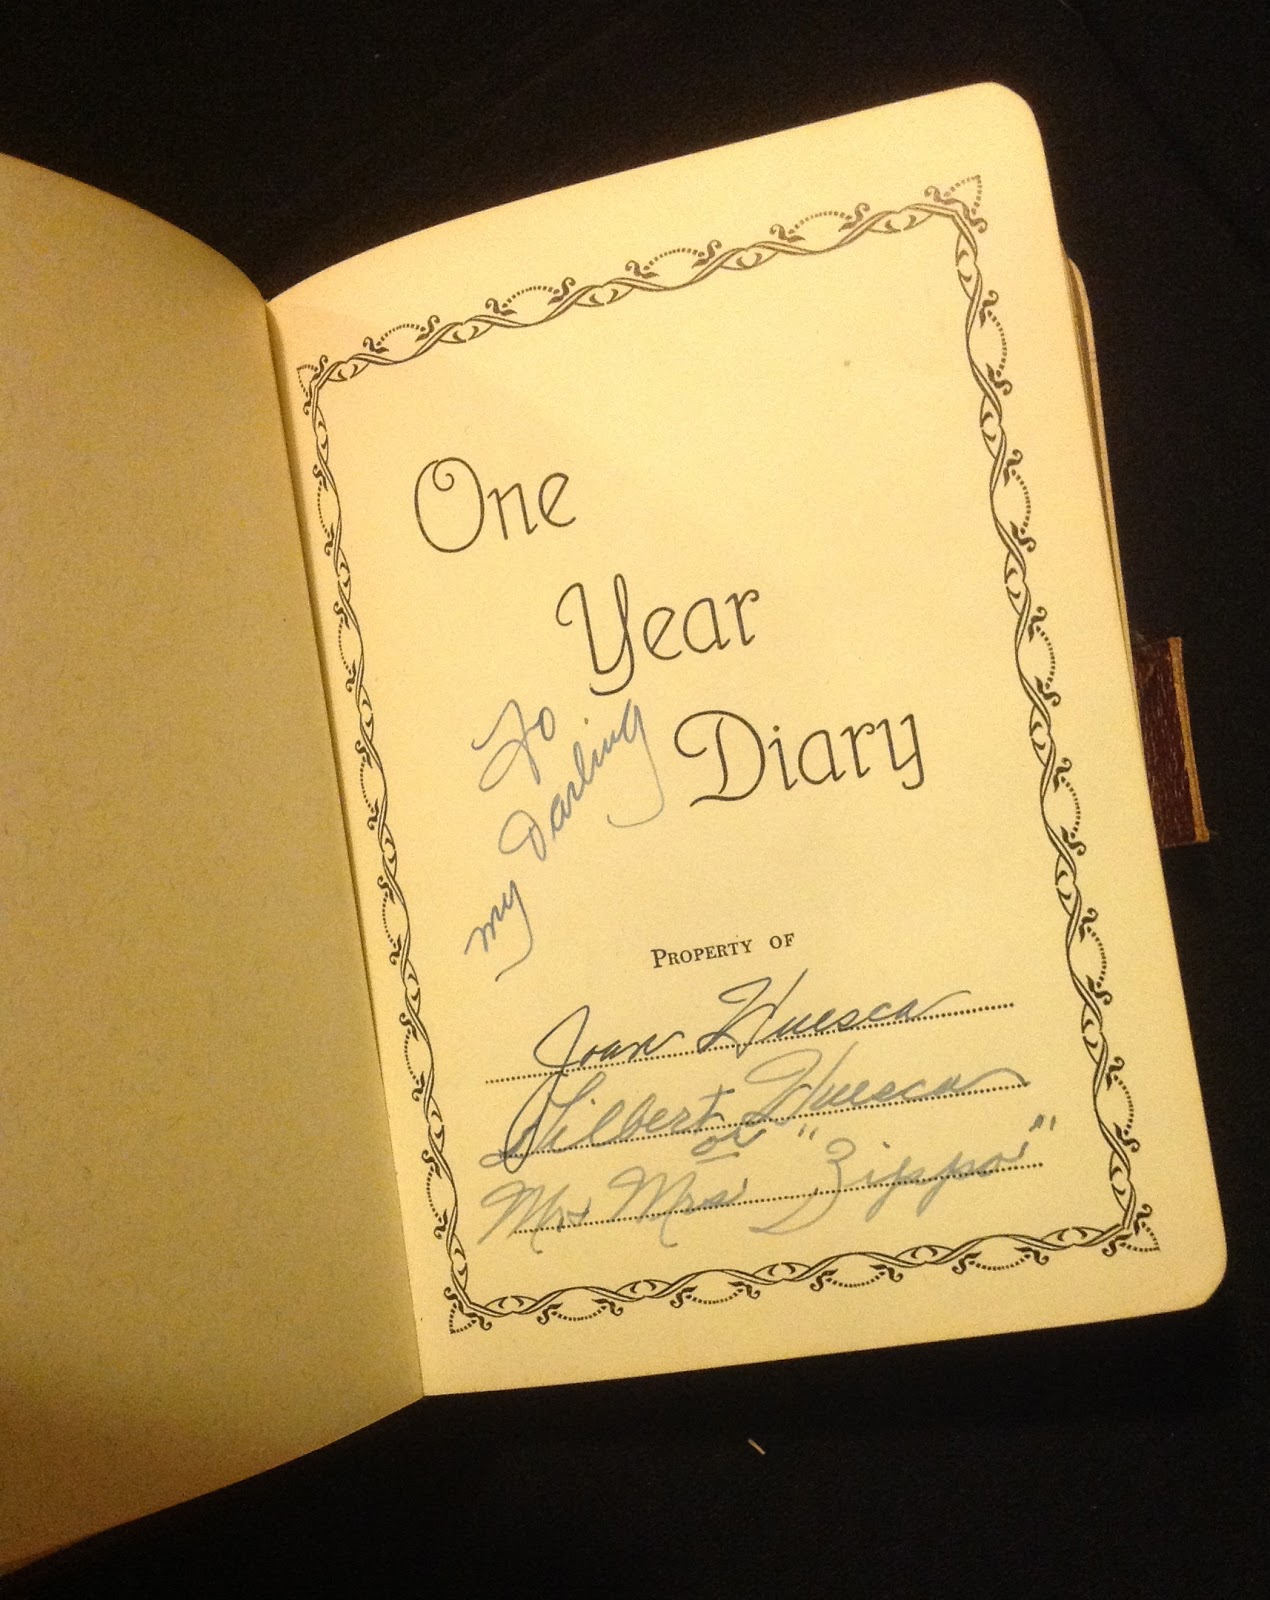 One
Year
Diary
To
my Darling
Property of
Joan Huesca
Gilbert Huesca
or
Mr & Mrs "Zippo"